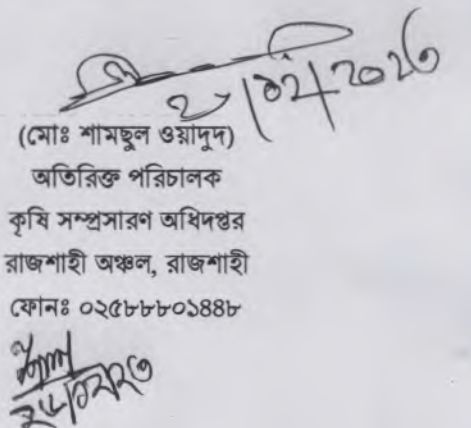 (মোঃ শামছুল ওয়াদুদ)
অতিরিক্ত পরিচালক
কৃষি সম্প্রসারণ অধিদপ্তর
রাজশাহী অঞ্চল, রাজশাহী
ফোনঃ ০২৫৮৮৮০১৪৪৮